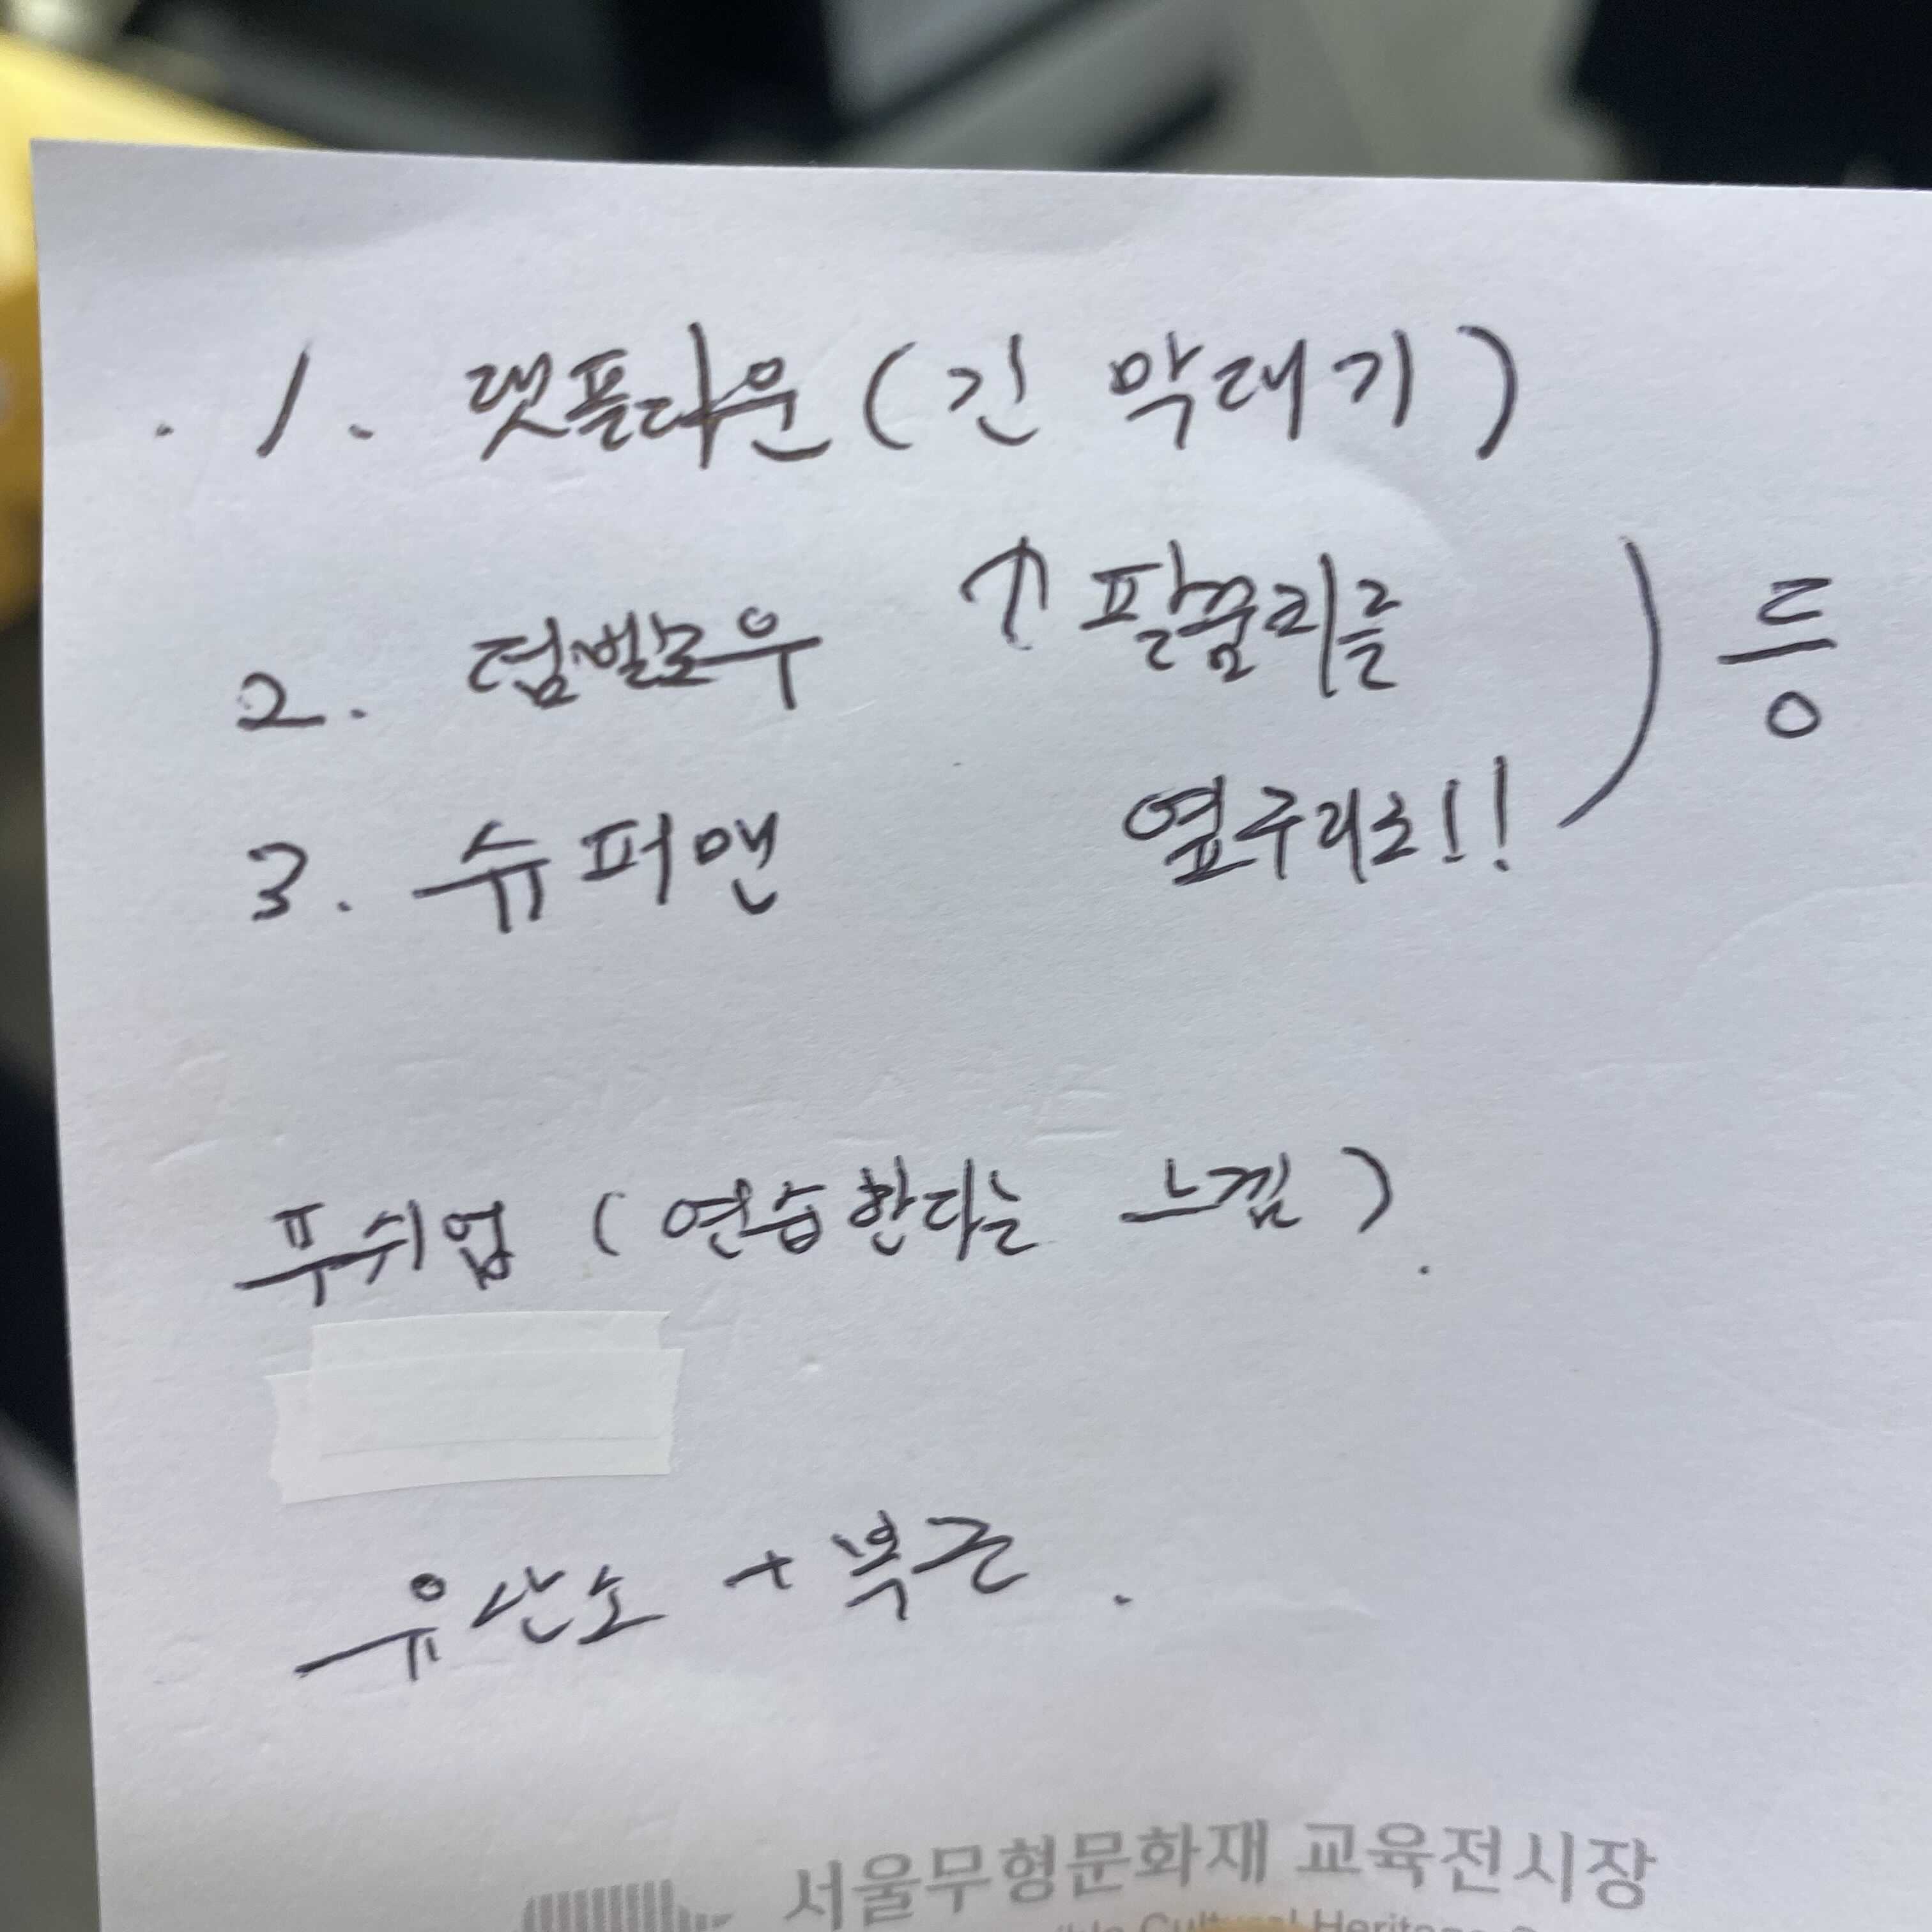 . 1. 랫풀다운 (긴 막대기)
2. 덤벨로우 ↑ 팔꿈치를
3. 슈퍼맨 옆구리로!! ) 등
푸쉬업 (연습한다는 느낌).
유산소 + 복근.
서울무형문화재 교육전시장
Cultural Heritage